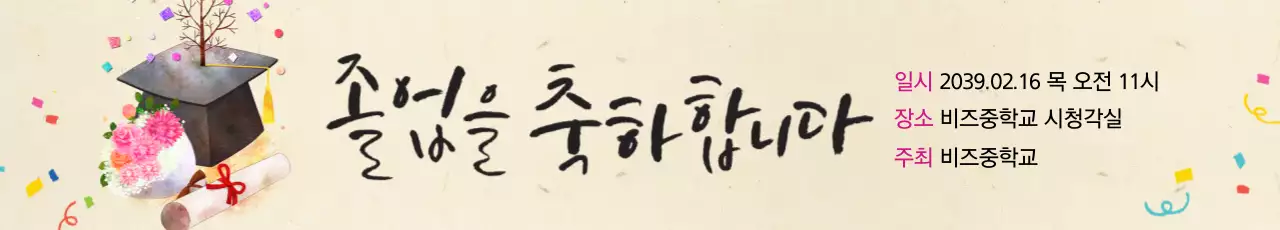 졸업을 축하합니다
일시 2039.02.16 목 오전 11시
장소 비즈중학교 시청각실
주최 비즈중학교